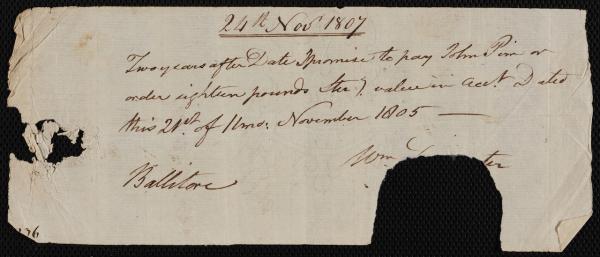 24th Novr 1807
Two years after Date I promise to pay John Pim or
order eighteen pounds Ster.g value in acct. Dated
this 21st. of 11mo: November 1805 —
Wm.
Ballitore
136